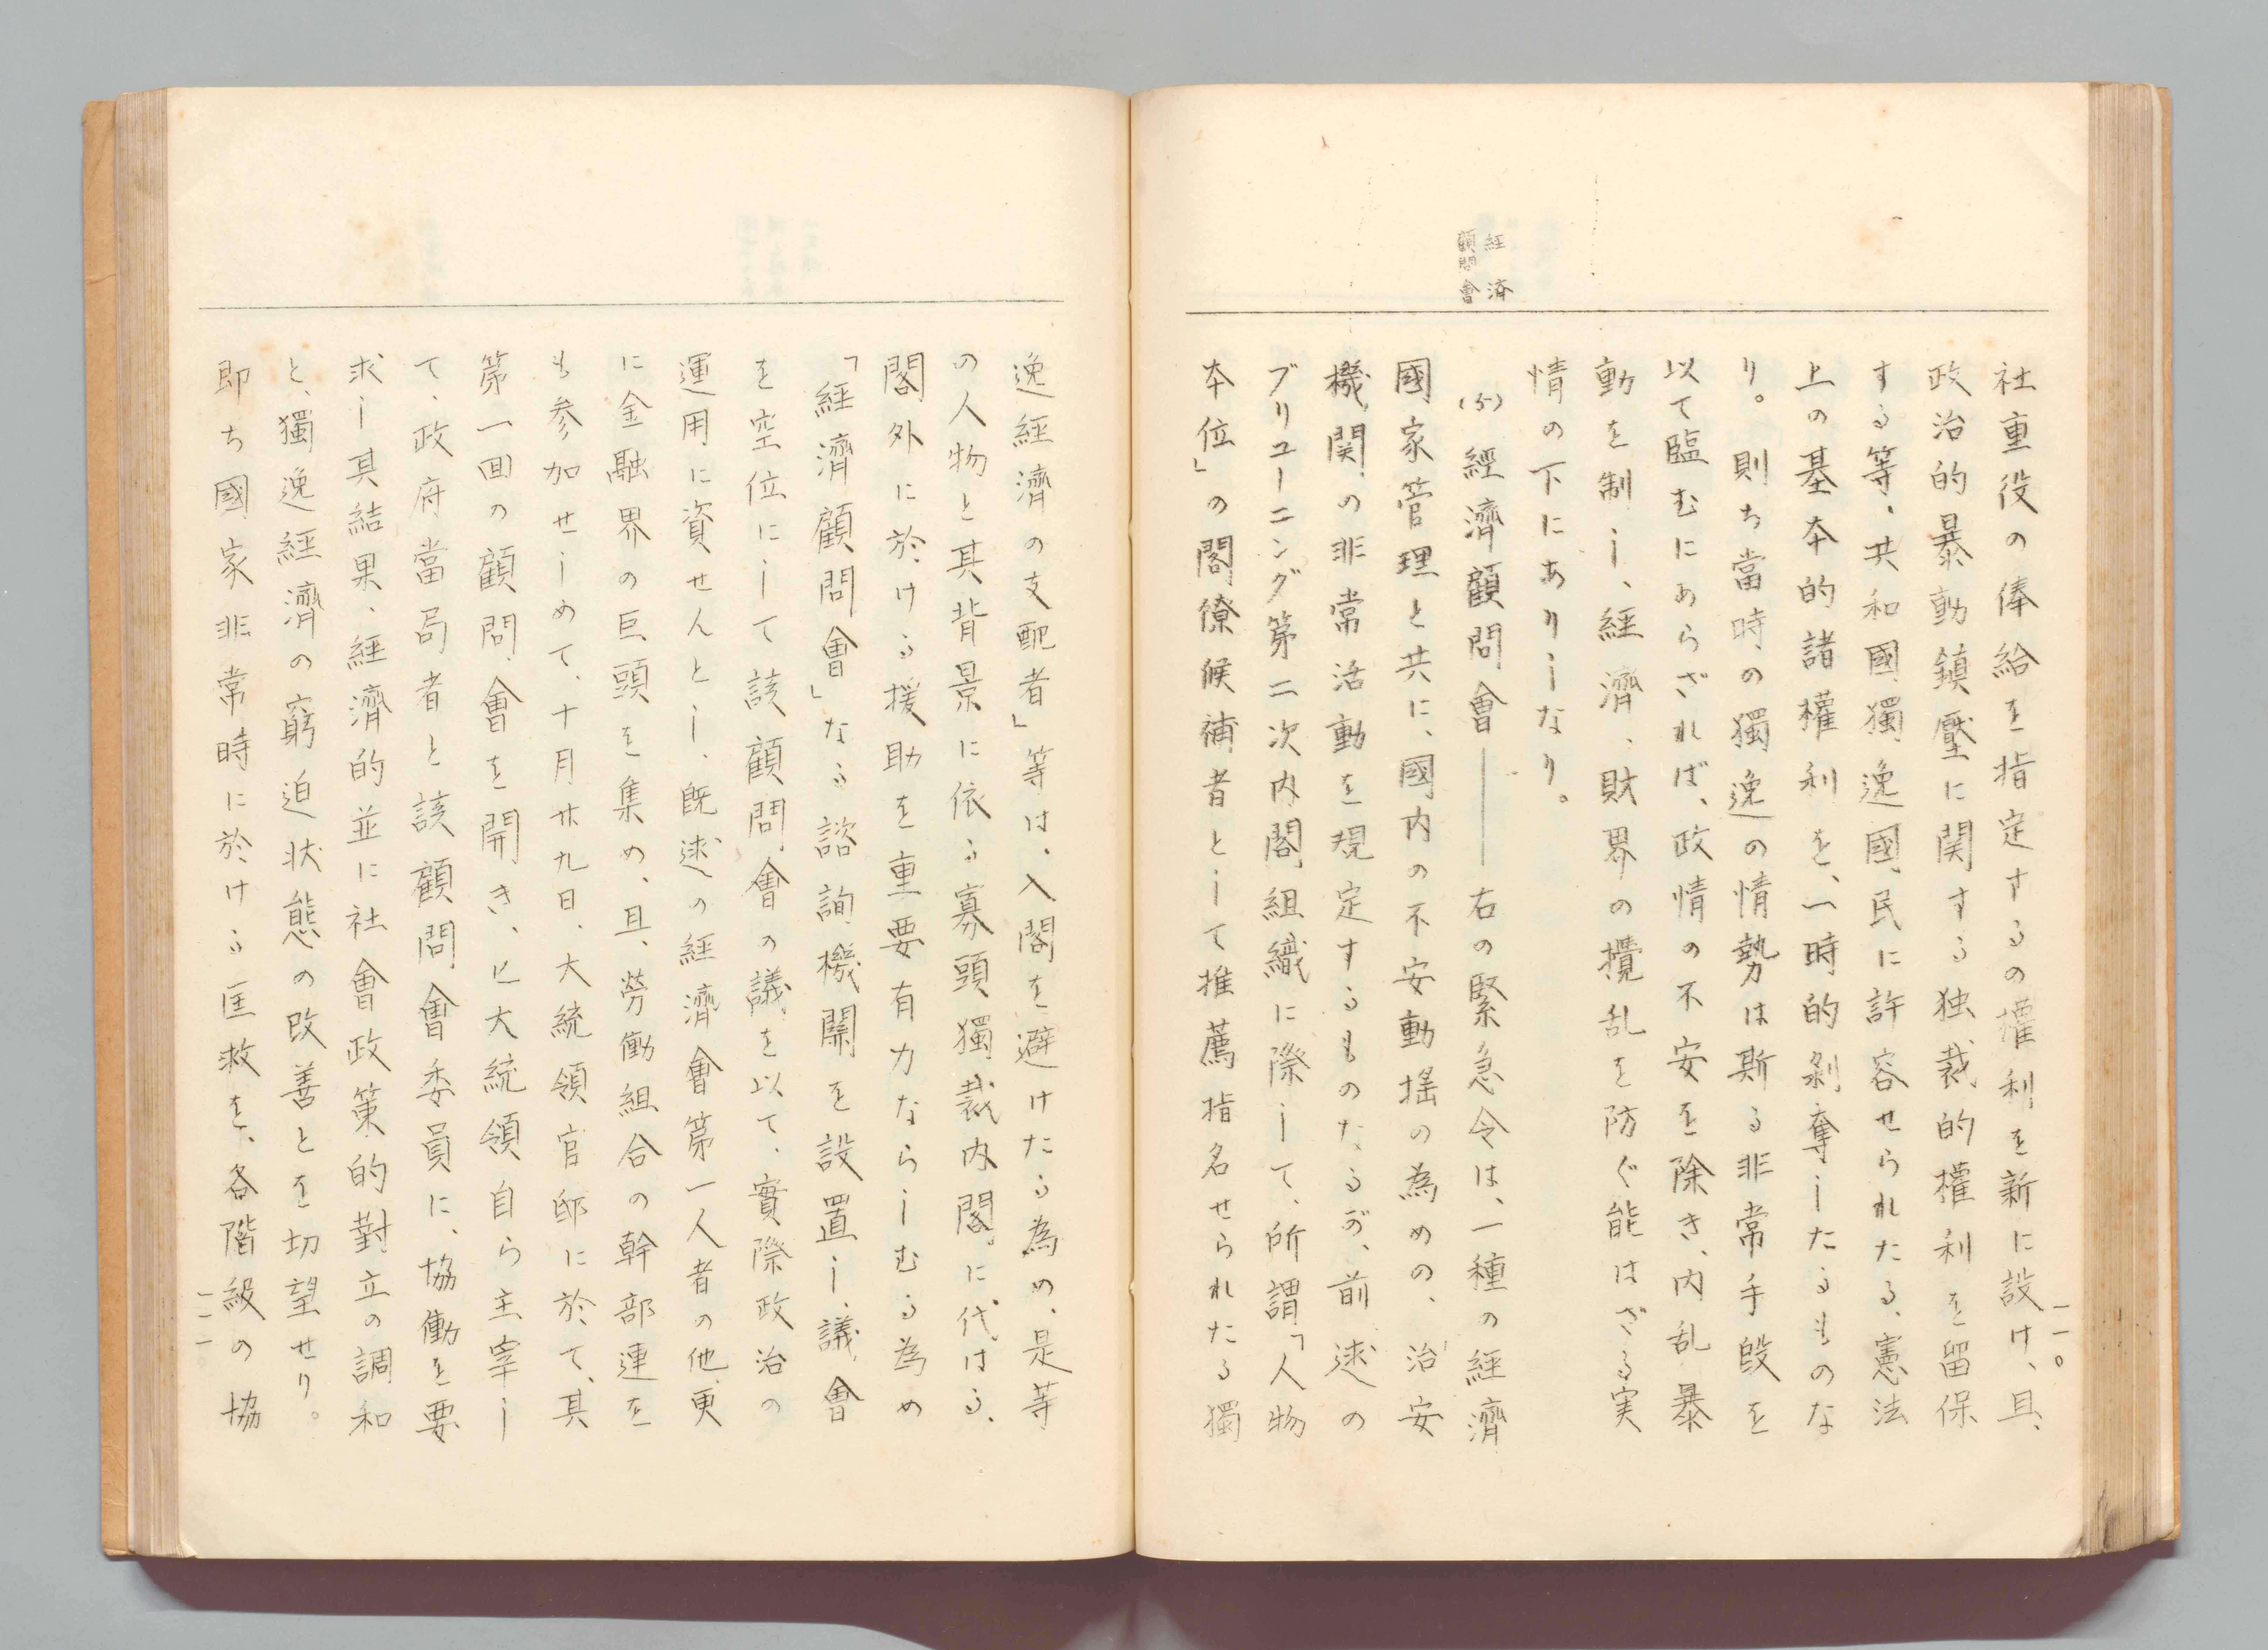 社重役の俸給を指定するの權利を新に設け、且、
政治的暴動鎮壓に関する独裁的權利を留保
する等、共和國獨逸國民に許容せられたる、憲法
上の基本的諸權利を、一時的剝奪したるものな
り。則ち當時の獨逸の情勢は斯る非常手段を
以て臨むにあらざれば、政情の不安を除き、内乱暴
動を制し、経濟、財界の攪乱を防ぐ能はざる実
情の下にありしなり。
經済
顧問會
(5) 經濟顧問會――右の緊急令は、一種の経濟
國家管理と共に、國内の不安動揺の為めの、治安
機関の非常活動を規定するものなるが、前述の
ブリューニング第二次内閣組織に際して、所謂「人物
本位」の閣僚候補者として推薦指名せられたる獨
一一〇
逸経濟の支配者」等は、入閣を避けたる為め、是等
の人物と其背景に依る寡頭獨裁内閣に代はる、
閣外に於ける援助を重要有力ならしむる為め
「経濟顧問會」なる諮詢機関を設置し、議會
を空位にして該顧問會の議を以て、實際政治の
運用に資せんとし、既述の経濟會第一人者の他更
に金融界の巨頭を集め、且、勞働組合の幹部連を
も参加せしめて、十月廿九日、大統領官邸に於て、其
第一回の顧問會を開き、ヒ大統領自ら主宰し
て、政府當局者と該顧問會委員に、協働を要
求し其結果、経濟的並に社會政策的對立の調和
と、獨逸経濟の窮迫状態の改善とを切望せり。
即ち國家非常時に於ける匡救を、各階級の協
一一一